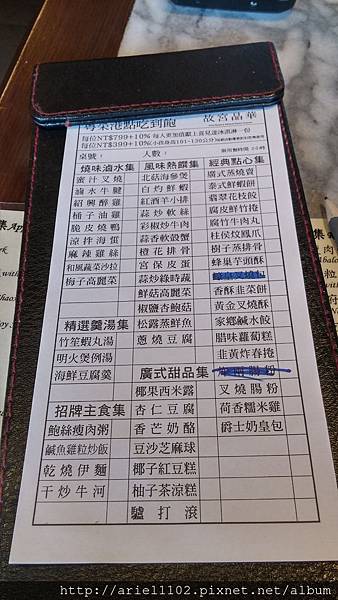 粵菜港點吃到飽 故宮晶華
每位NT$799+10%
每位NT$399+10%
桌號: 人數:
燒味滷水集
蜜汁叉燒
滷水牛腱
紹興醉雞
桶子油雞
脆皮燒鴨
涼拌海蜇
麻辣雞絲
和風蔬菜沙拉
梅子高麗菜
精選羹湯集
竹笙蝦丸湯
明火煲例湯
海鮮豆腐羹
招牌主食集
鮑絲瘦肉粥
鹹魚雞粒炒飯
乾燒伊麵
干炒牛河
風味熱饌集
北菇海參煲
白灼鮮蝦
紅酒羊小排
蒜炒軟絲
彩椒炒牛肉
蒜香軟殼蟹
橙花排骨
宮保皮蛋
蒜炒綠時蔬
鮮菇高麗菜
椒鹽杏鮑菇
松露蒸鮮魚
蔥燒豆腐
廣式甜品集
椰果西米露
杏仁豆腐
香芒奶酪
豆沙芝麻球
椰子紅豆糕
柚子茶涼糕
驢打滾
經典點心集
廣式蒸燒賣
泰式鮮蝦餅
翡翠花枝餃
腐皮鮮竹捲
腐竹牛肉丸
柱侯炆鳳爪
樹子蒸排骨
蜂巢芋頭酥
香酥韭菜餅
黃金叉燒酥
家鄉鹹水餃
腊味蘿蔔糕
韭黃炸春捲
叉燒腸粉
荷香糯米雞
爵士奶皇包
http://ariel1102.pixnet.net/album